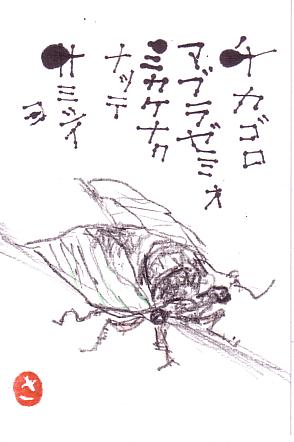 チカゴロ
アブラゼミオ
ミカケナク
ナッテ
サミシイ
ヨ
さ